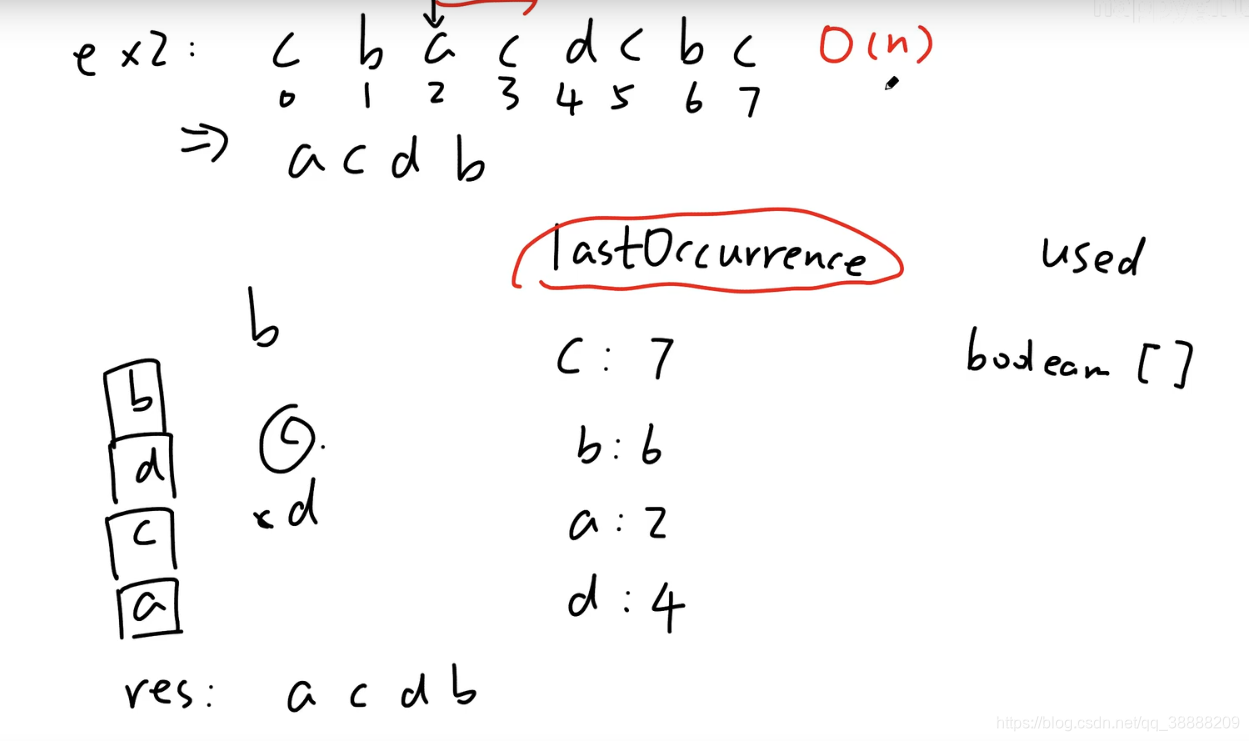 ex2: c b a c d c b c O(n)
0 1 2 3 4 5 6 7
⇒ a c d b
lastOccurrence used
b
c: 7 boolean []
b
c.
b: 6
d
x d
c
a: 2
a
d: 4
res: a c d b
https://blog.csdn.net/qq_38888209